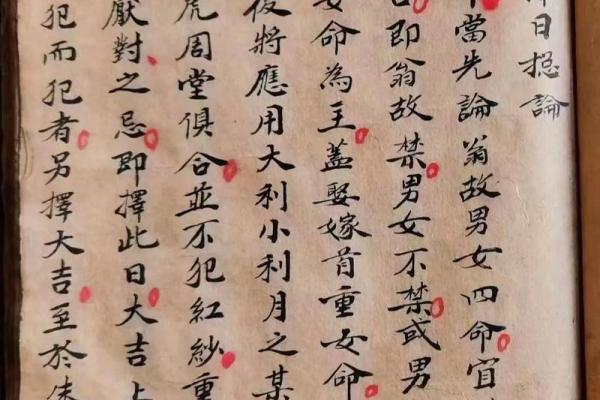 日總論
當先論翁故男女四命宜
即翁故禁男女不禁或男
女命為主蓋娶嫁首重女命
後將應用大利小利月之某
虎周堂俱合並不犯紅紗重
厭對之忌即擇此日大吉上
犯而犯者另擇大吉至於